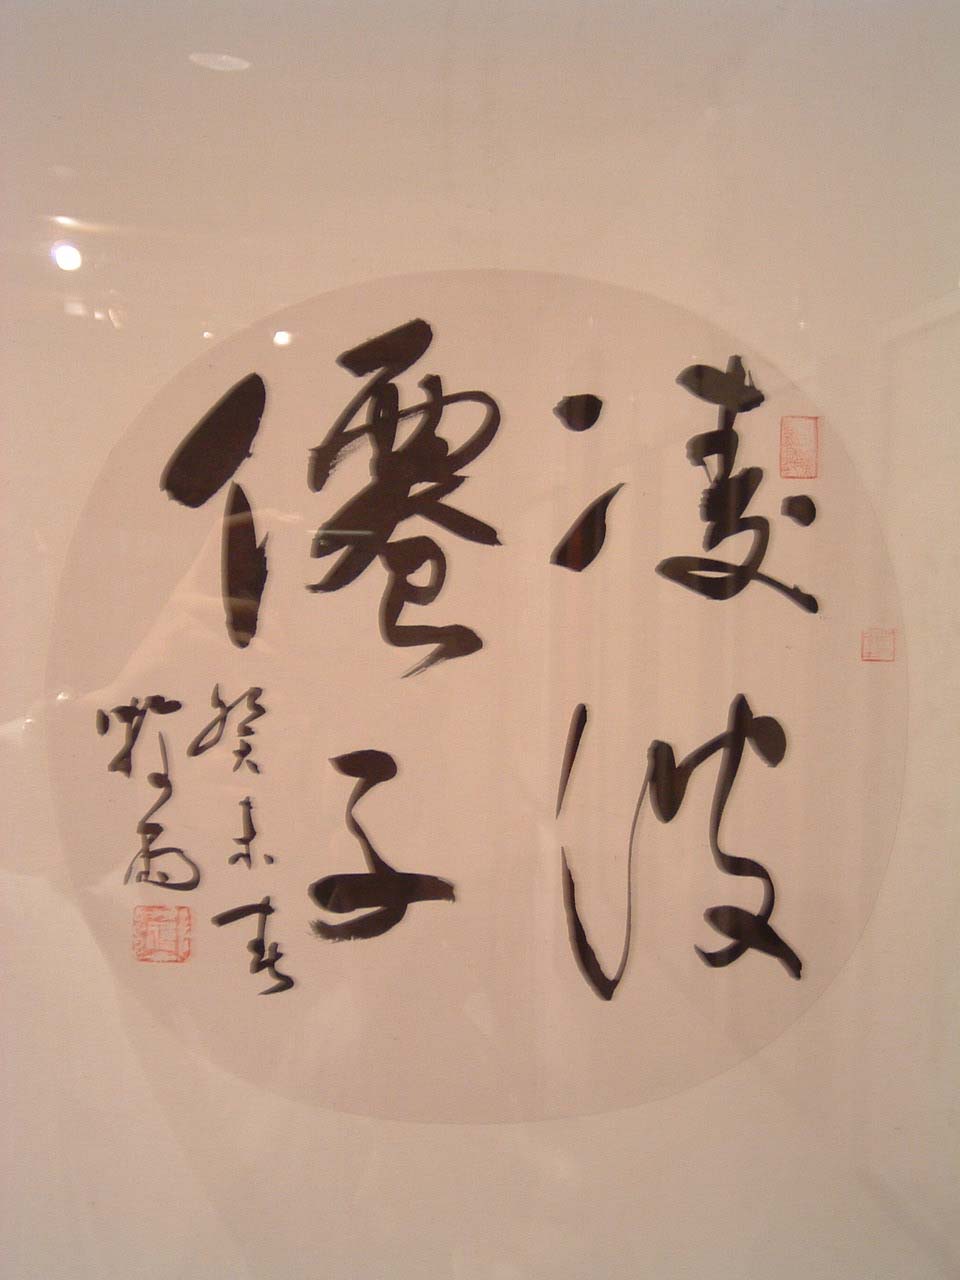 凌波
僊子
癸未春